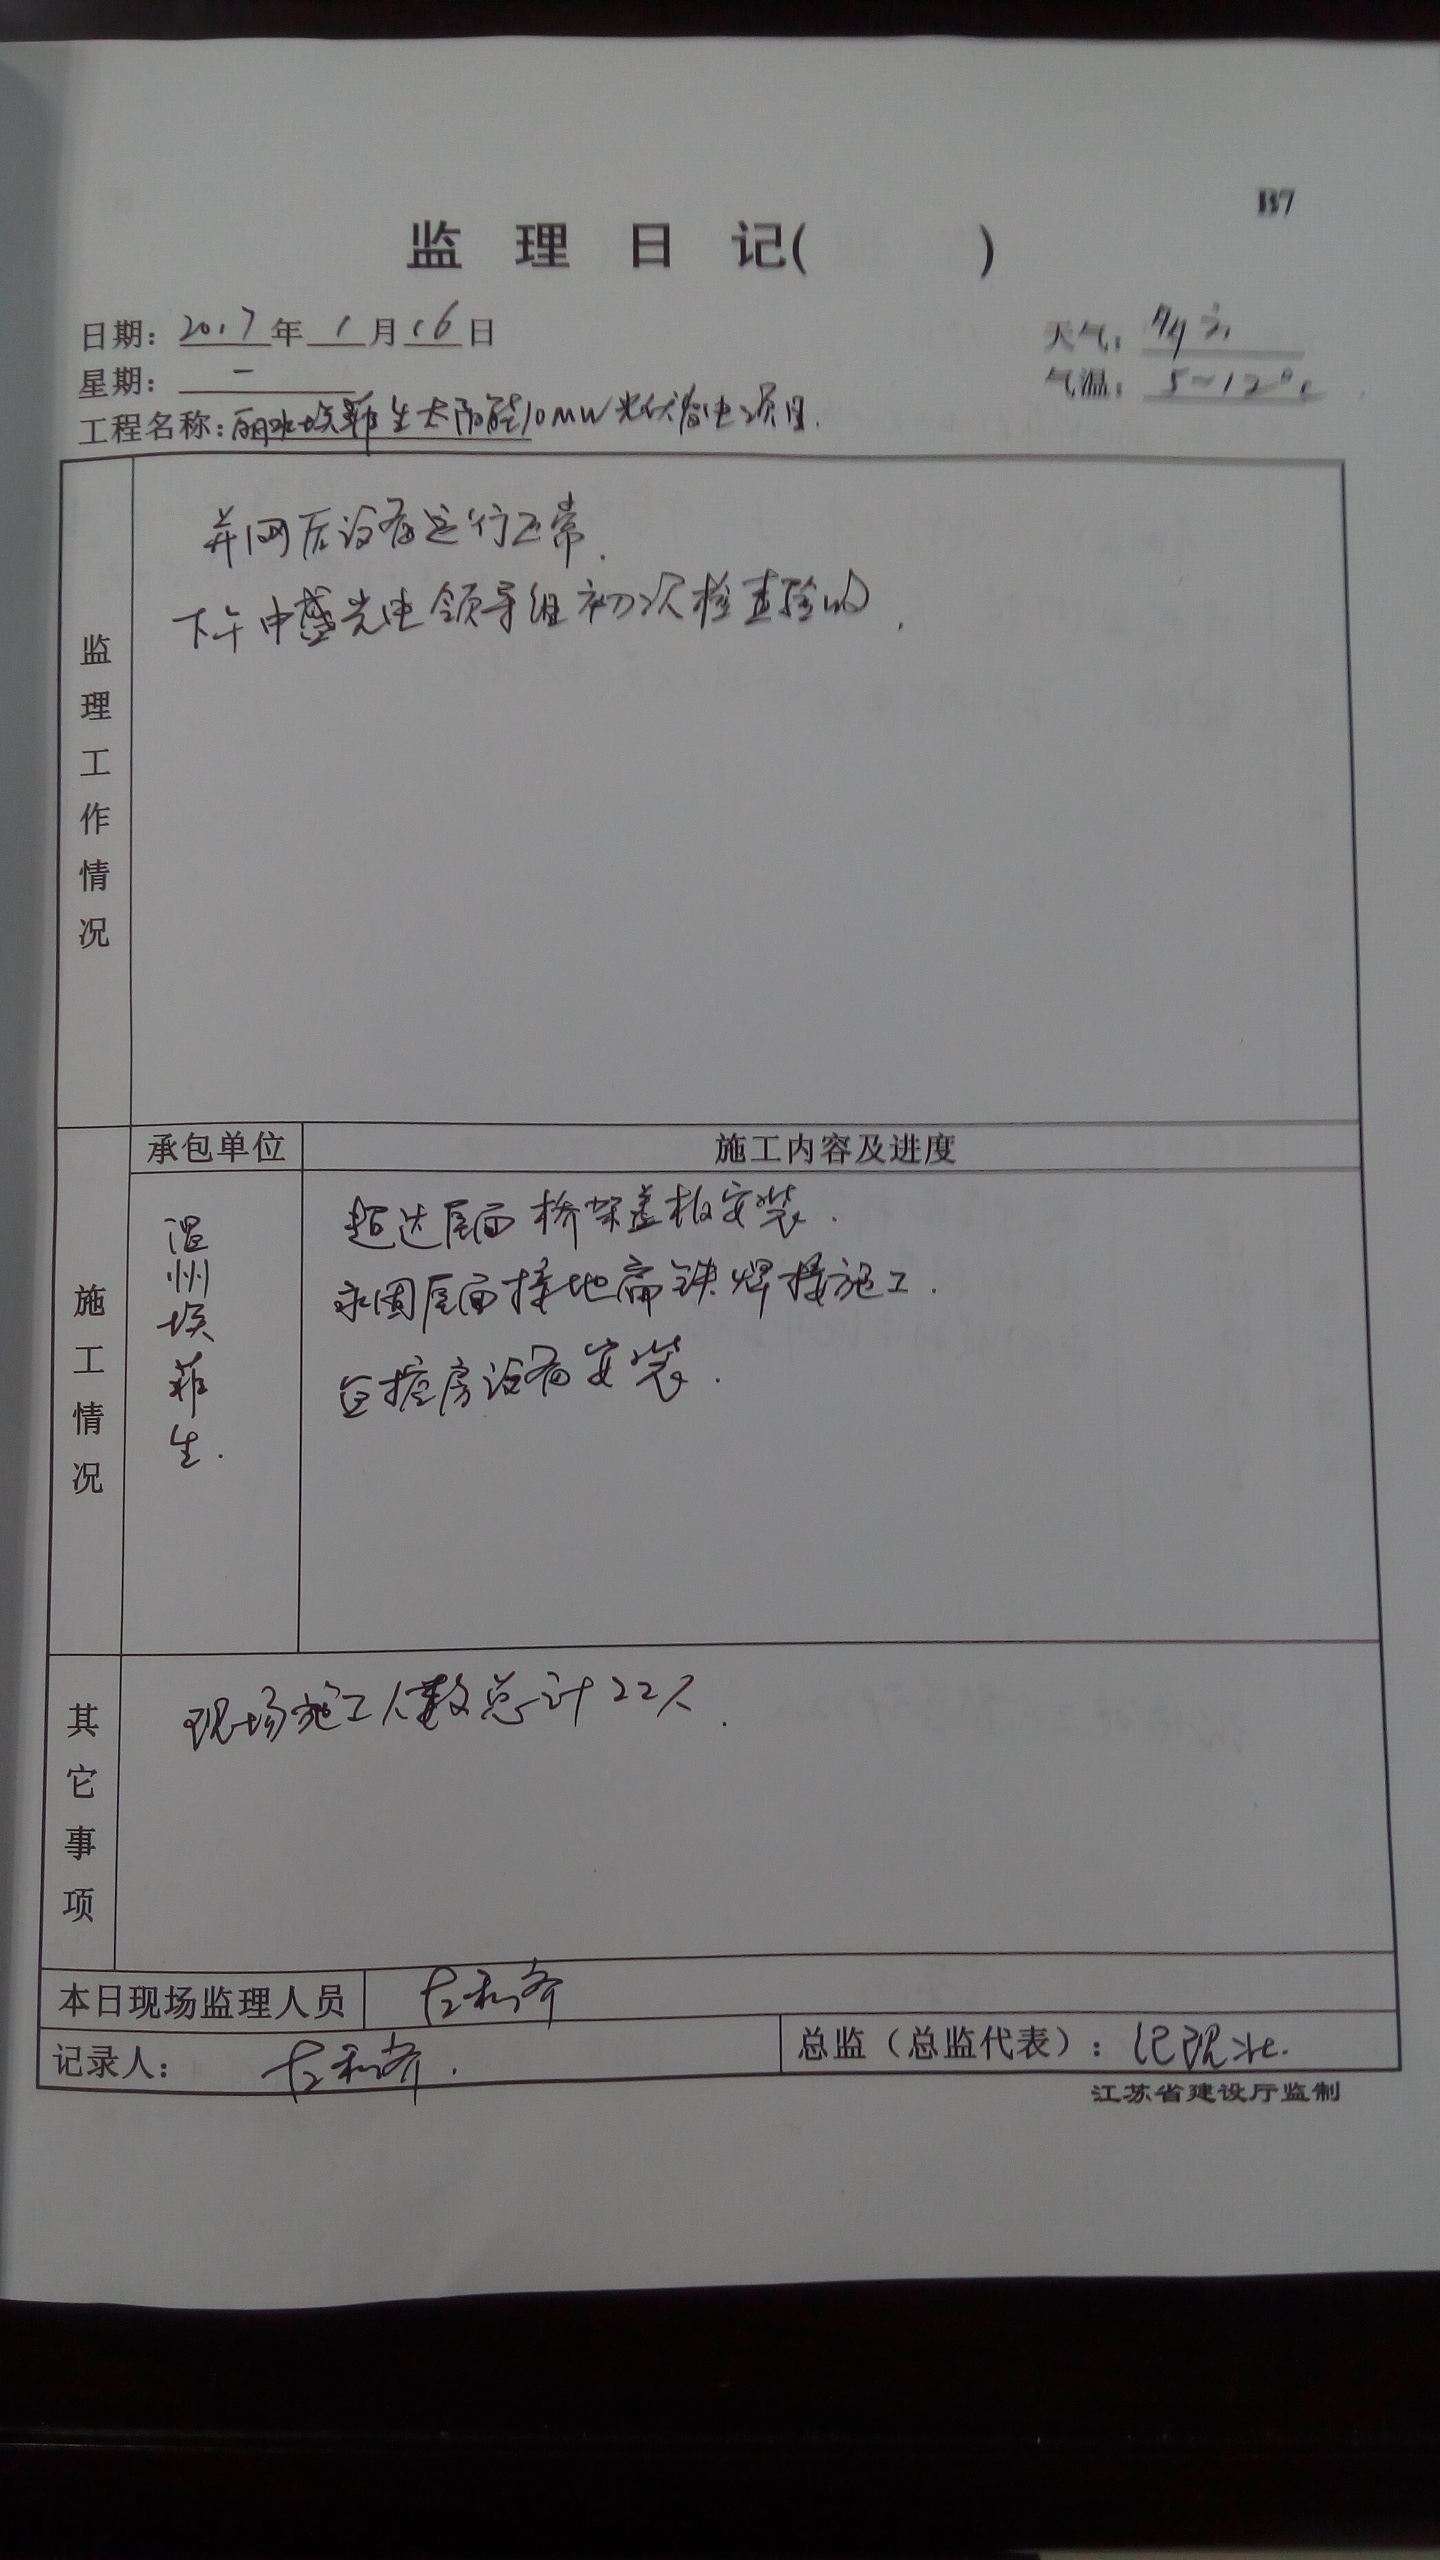 B7
监 理 日 记( )
日期: 2017年1月16日
天气:
星期: 一
气温: 5~12℃
工程名称: 丽水埃菲生太阳能10MW光伏发电项目.
监理工作情况
并网后设备运行正常.
下午中盛光电领导组初次检查验收.
施工情况
承包单位
施工内容及进度
温州埃菲生.
超达屋面桥架盖板安装.
永固屋面接地扁铁焊接施工.
区控房设备安装.
其它事项
现场施工人数总计22人.
本日现场监理人员
记录人:
总监（总监代表）:
江苏省建设厅监制